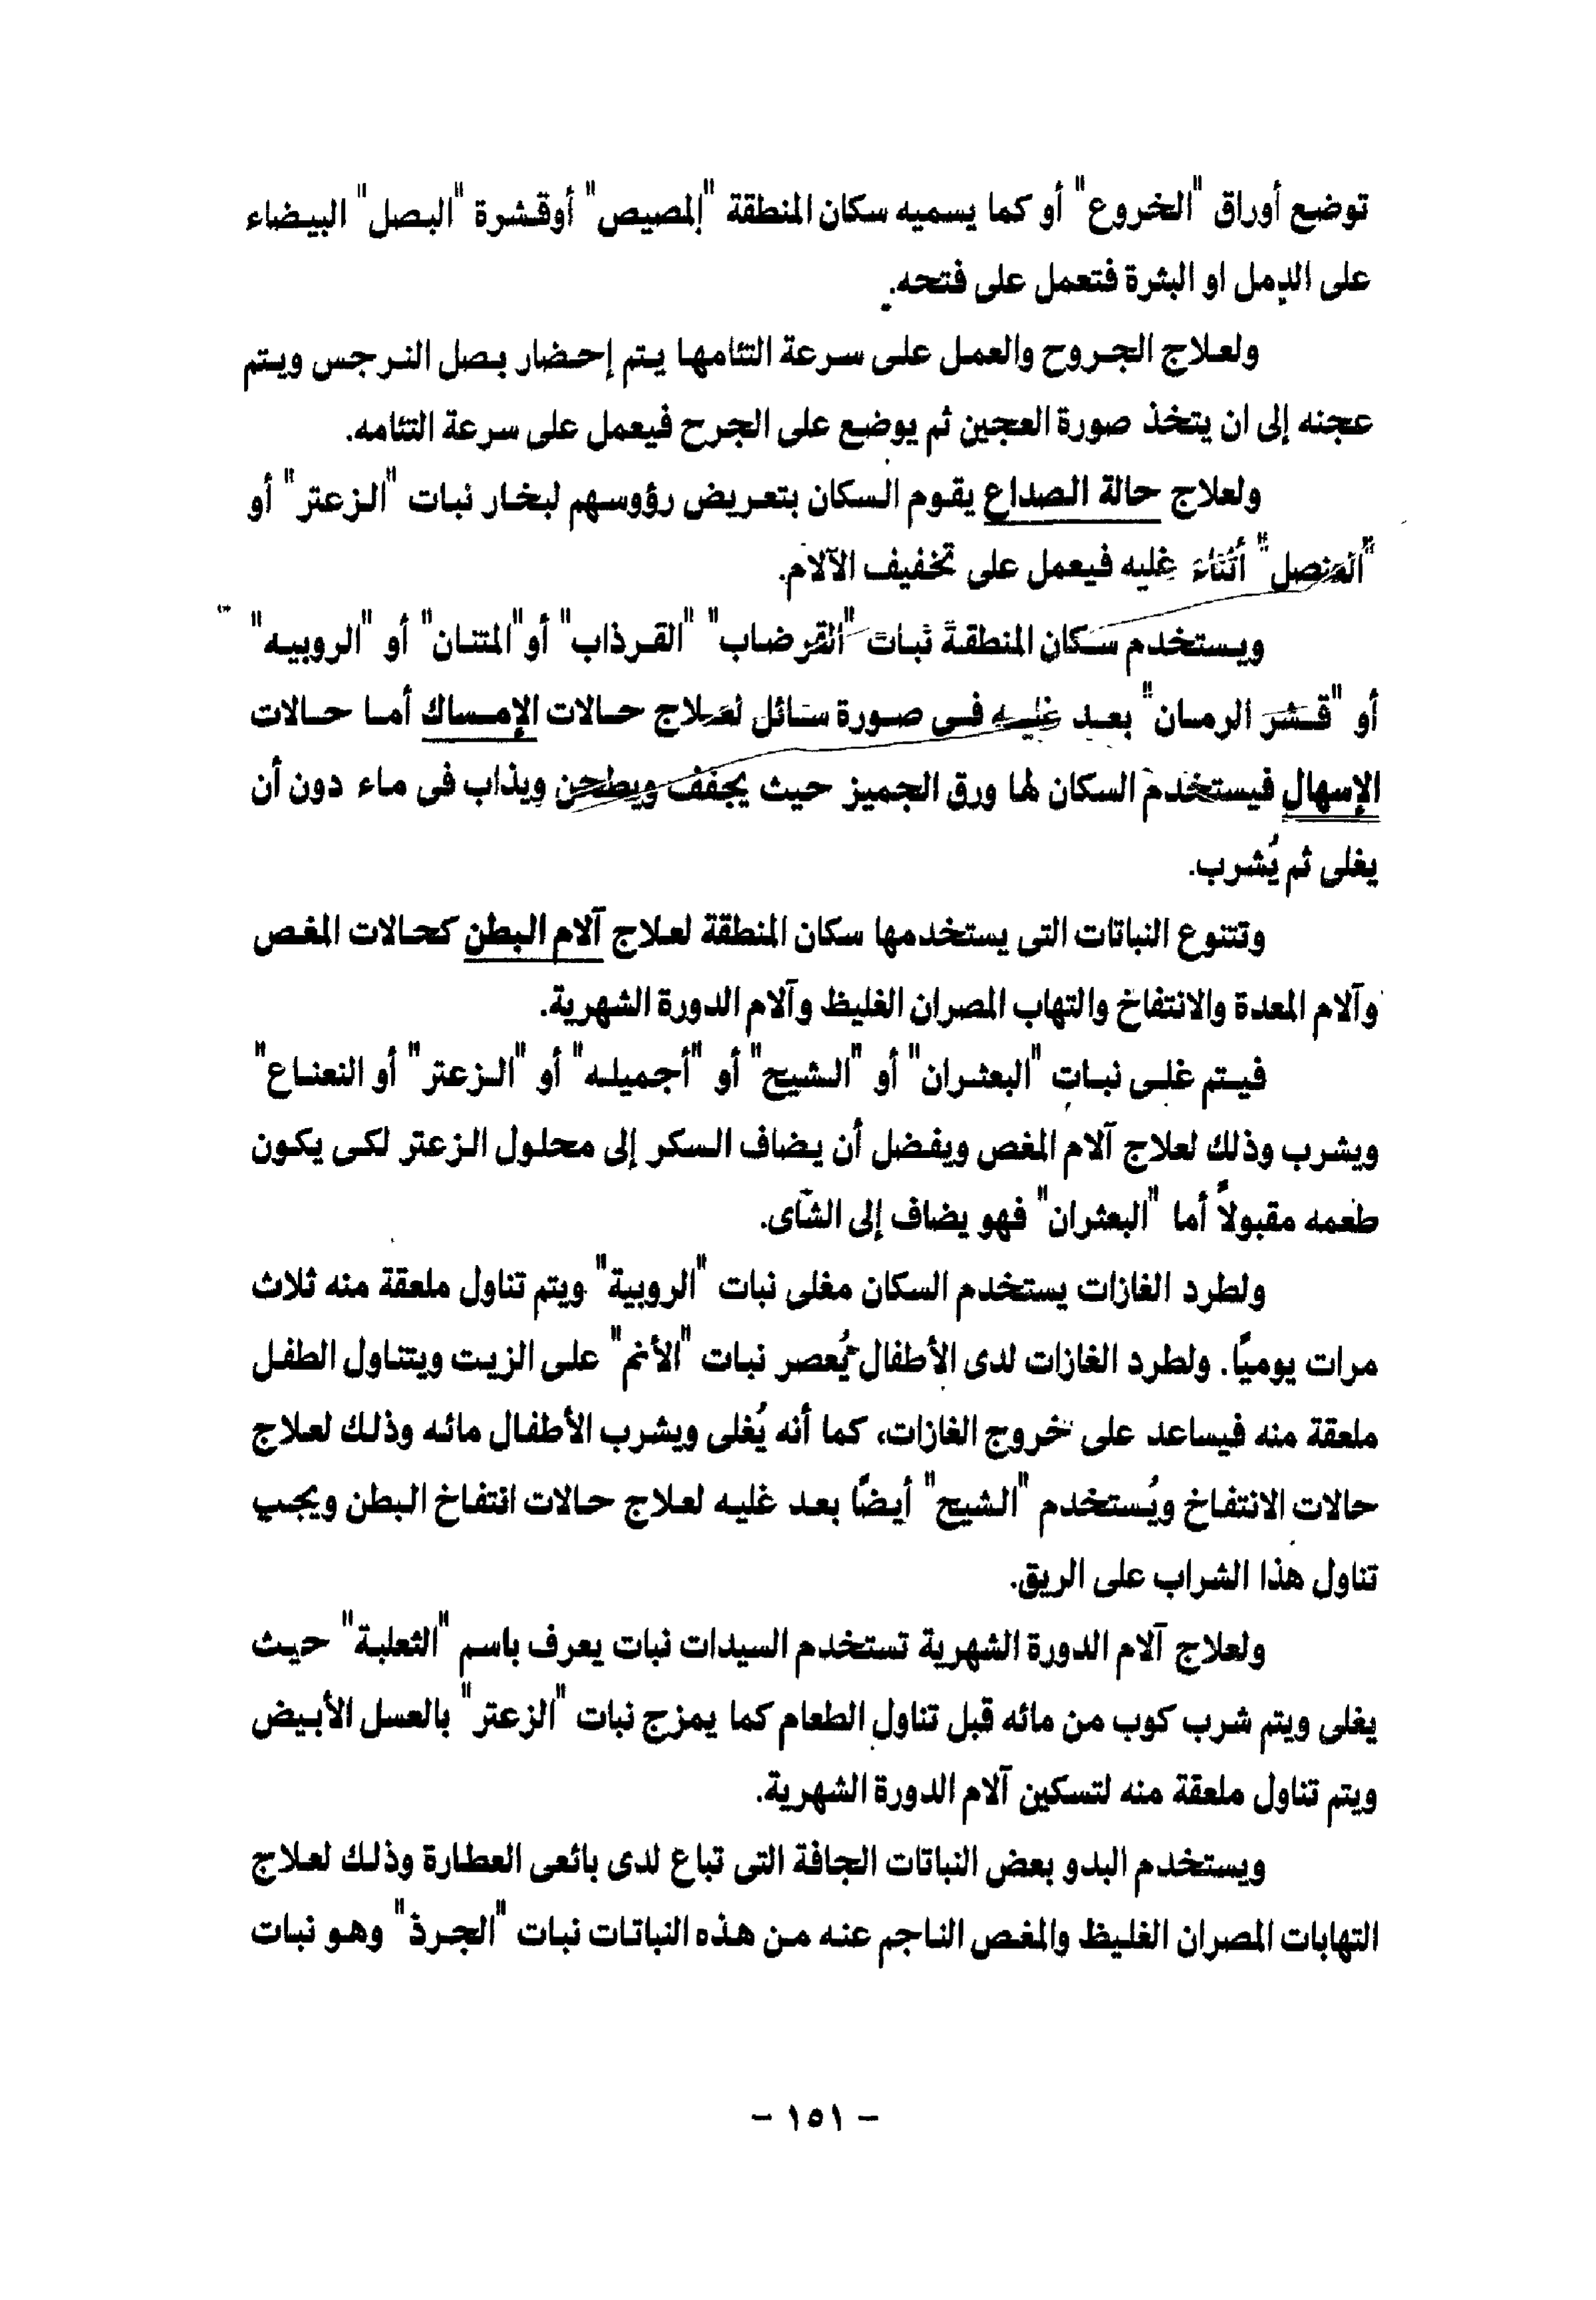 توضع أوراق "الخروع" أو كما يسميه سكان المنطقة "المصيص" أوقشرة "البصل" البيضاء
على الدمل او البثرة فتعمل على فتحه.
ولعلاج الجروح والعمل على سرعة التئامها يتم إحضار بصل النرجس ويتم
عجنه إلى ان يتخذ صورة العجين ثم يوضع على الجرح فيعمل على سرعة التئامه.
ولعلاج حالة الصداع يقوم السكان بتعريض رؤوسهم لبخار نبات "الزعتر" أو
"العنصل" أثناء غليه فيعمل على تخفيف الآلام.
ويستخدم سكان المنطقة نبات "القرضاب" "القرذاب" أو"المتنان" أو "الروبيه"
أو "قشر الرمان" بعد غليه فى صورة سائل لعلاج حالات الإمساك أما حالات
الإسهال فيستخدم السكان لها ورق الجميز حيث يجفف ويطحن ويذاب فى ماء دون أن
يغلى ثم يُشرب.
وتتنوع النباتات التى يستخدمها سكان المنطقة لعلاج آلام البطن كحالات المغص
وآلام المعدة والانتفاخ والتهاب المصران الغليظ وآلام الدورة الشهرية.
فيتم غلى نبات "البعثران" أو "الشيح" أو "أجميله" أو "الزعتر" أو النعناع"
ويشرب وذلك لعلاج آلام المغص ويفضل أن يضاف السكر إلى محلول الزعتر لكى يكون
طعمه مقبولاً أما "البعثران" فهو يضاف إلى الشاى.
ولطرد الغازات يستخدم السكان مغلى نبات "الروبية" ويتم تناول ملعقة منه ثلاث
مرات يوميًا. ولطرد الغازات لدى الأطفال يُعصر نبات "الأنم" على الزيت ويتناول الطفل
ملعقة منه فيساعد على خروج الغازات، كما أنه يُغلى ويشرب الأطفال مائه وذلك لعلاج
حالات الانتفاخ ويُستخدم "الشيح" أيضًا بعد غليه لعلاج حالات انتفاخ البطن ويجب
تناول هذا الشراب على الريق.
ولعلاج آلام الدورة الشهرية تستخدم السيدات نبات يعرف باسم "الثعلبة" حيث
يغلى ويتم شرب كوب من مائه قبل تناول الطعام كما يمزج نبات "الزعتر" بالعسل الأبيض
ويتم تناول ملعقة منه لتسكين آلام الدورة الشهرية.
ويستخدم البدو بعض النباتات الجافة التى تباع لدى بائعى العطارة وذلك لعلاج
التهابات المصران الغليظ والمغص الناجم عنه من هذه النباتات نبات "الجرذ" وهو نبات
- ١٥١ -